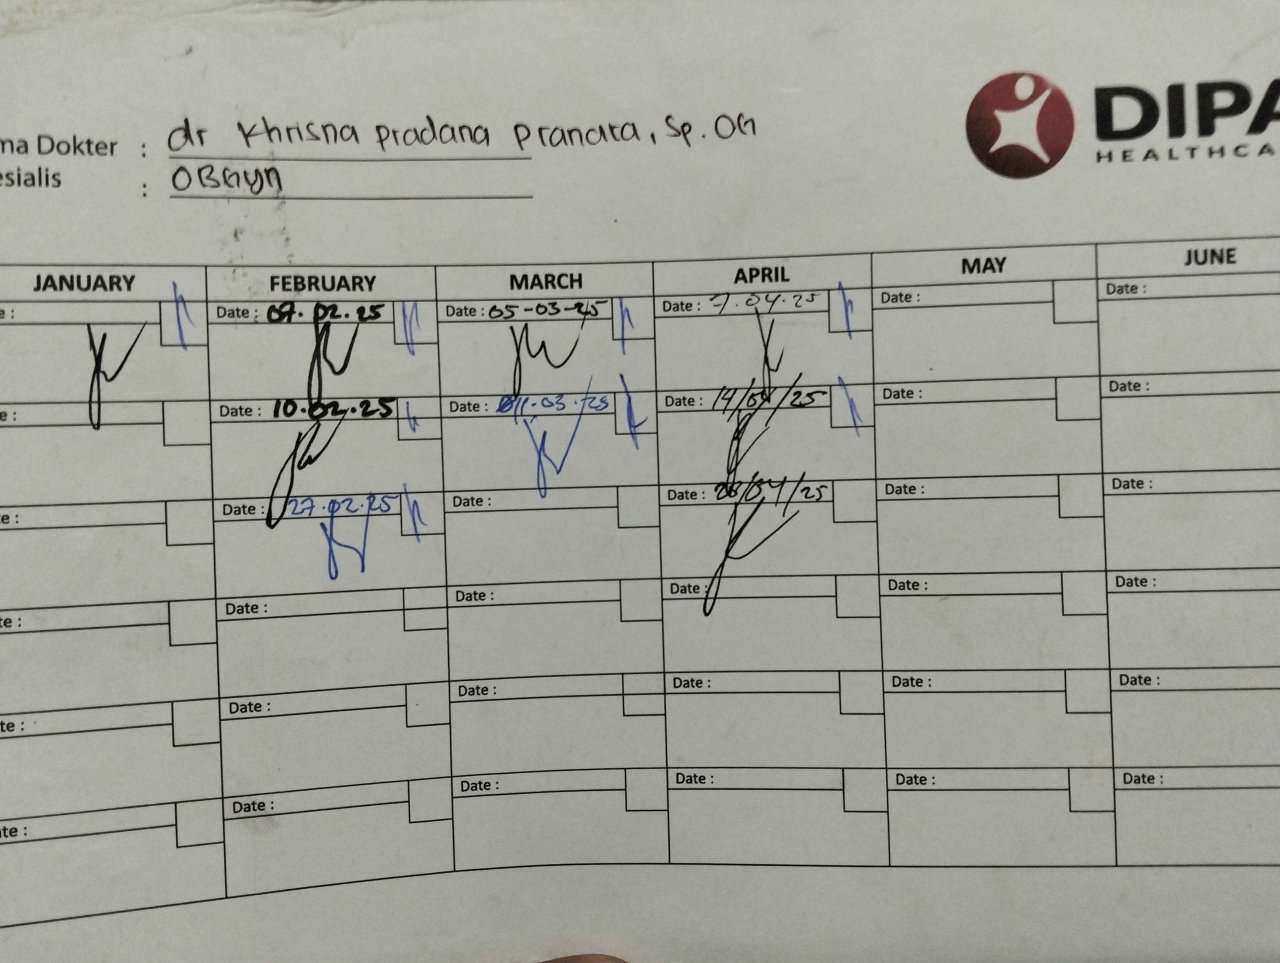 ma Dokter : dr Khrisna Pradana Pranata, Sp. OG
esialis : OBGYN
DIPA
HEALTHCA
JANUARY FEBRUARY MARCH APRIL MAY JUNE
e : Date : 07.02.25 Date : 05-03-25 Date : 7.04.25 Date : Date :
e : Date : 10.02.25 Date : 11.03.25 Date : 14/04/25 Date : Date :
e : Date : 27.02.25 Date : Date : /04/25 Date : Date :
te : Date : Date : Date : Date : Date :
te : Date : Date : Date : Date : Date :
te : Date : Date : Date : Date : Date :